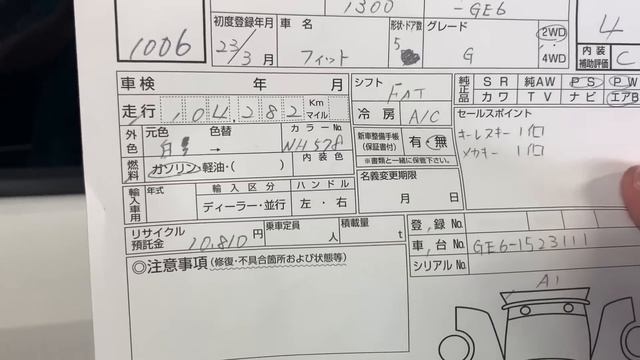 1300 -GE6
1006
初度登録年月 車名 形状・ドア数 グレード
23/3月 フィット 5 G 2WD 4WD
4
内装補助評価 C
車検 年 月 シフト FAT
純正品 SR 純AW PS PW
カワ TV ナビ エアB
走行 104,282 Km マイル 冷房 A/C
セールスポイント
外色 元色 色替 カラーNo.
白 → NH578
新車整備手帳(保証書付) 有・無
※書類と一緒に保管下さい。
キーレスキー 1コ
メカキー 1コ
燃料 ガソリン・軽油・( ) 内装色
名義変更期限
月 日
輸入車用 年式 輸入区分 ハンドル
ディーラー・並行 左・右
リサイクル預託金 10,810円 乗車定員 人 積載量 t
登録No.
車台No. GE6-1523111
シリアルNo.
◎注意事項(修復・不具合箇所および状態等)
A1